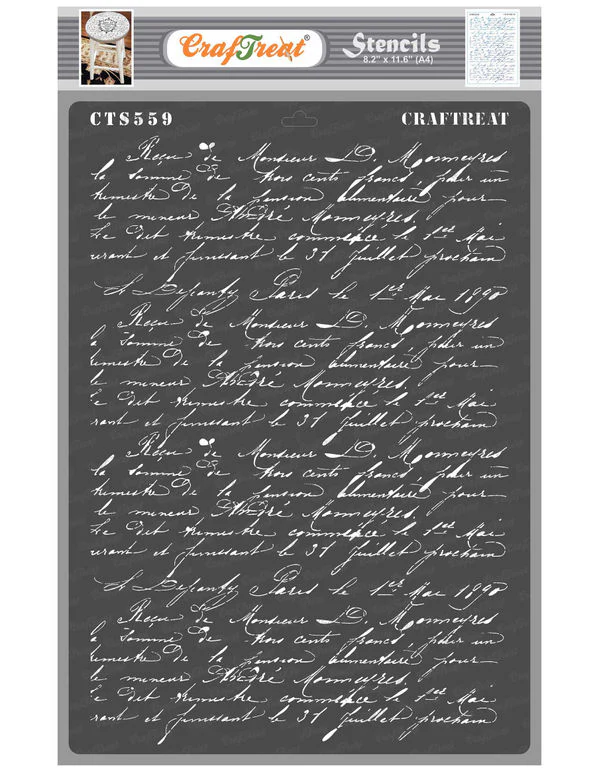 CrafTreat Stencils
8.2" x 11.6" (A4)
CTS559 CRAFTREAT
Reçu de Monsieur D. Monmeyres
la Somme de trois cents francs, pour un
trimestre de la pension alimentaire pour
le mineur André Monmeyres.
Le dit trimestre commence le 1er Mai
et finissant le 31 juillet prochain
Paris le 1er Mai 1890
Reçu de Monsieur D. Monmeyres
a Somme de trois cents francs, pour un
trimestre de la pension alimentaire pour
le mineur André Monmeyres.
Le dit trimestre commence le 1er Mai
rant et finissant le 31 juillet prochain
Reçu de Monsieur D. Monmeyres
la Somme de trois cents francs, pour un
trimestre de la pension alimentaire pour
le mineur André Monmeyres.
Le dit trimestre commence le 1er Mai
et finissant le 31 juillet prochain
Paris le 1er Mai 1890
Reçu de Monsieur D. Monmeyres
a Somme de trois cents francs, pour un
trimestre de la pension alimentaire pour
le mineur André Monmeyres.
Le dit trimestre commence le 1er Mai
rant et finissant le 31 juillet prochain